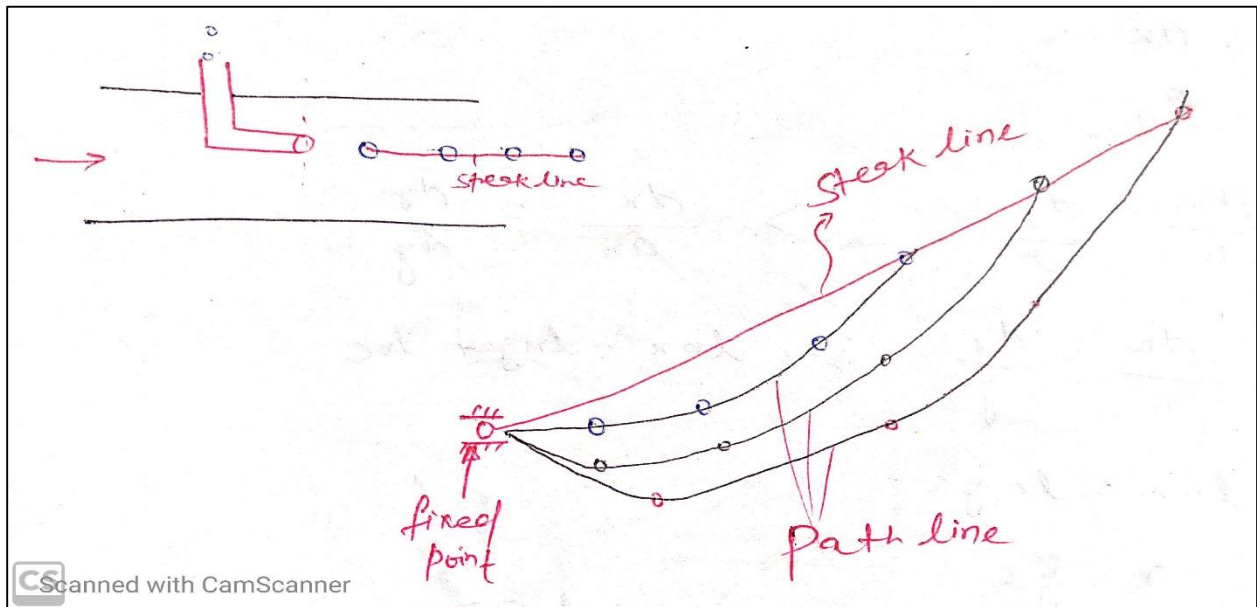 steak line
steak line
fixed
point
path line
CS Scanned with CamScanner